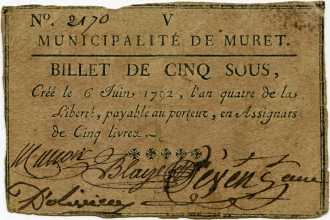 N°. 2170 V
MUNICIPALITÉ DE MURET.
BILLET DE CINQ SOUS,
Créé le 6 Juin 1792, l'an quatre de la
Liberté, payable au porteur, en Assignats
de Cinq livres.